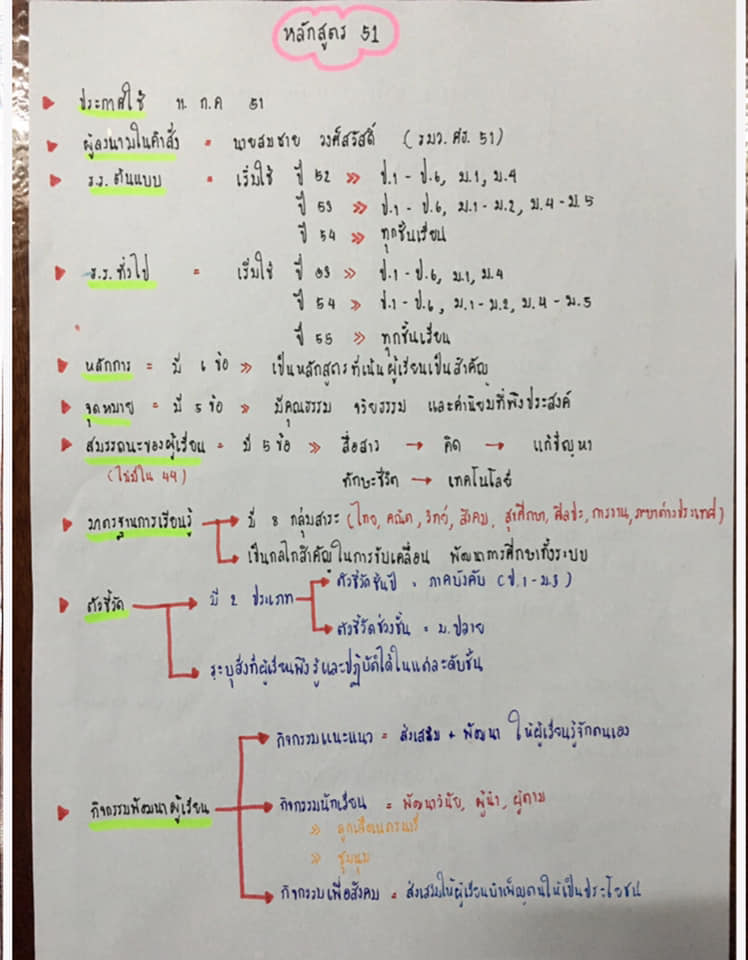 หลักสูตร 51
ประกาศใช้ 11 ก.ค 51
ผู้ลงนามในคำสั่ง = นายสมชาย วงศ์สวัสดิ์ (รมว. ศธ. 51)
ร.ร. ต้นแบบ = เริ่มใช้ ปี 52 » ป.1 - ป.6, ม.1, ม.4
ปี 53 » ป.1 - ป.6, ม.1 - ม.2, ม.4 - ม.5
ปี 54 » ทุกชั้นเรียน
ร.ร. ทั่วไป = เริ่มใช้ ปี 53 » ป.1 - ป.6, ม.1, ม.4
ปี 54 » ป.1 - ป.6, ม.1 - ม.2, ม.4 - ม.5
ปี 55 » ทุกชั้นเรียน
หลักการ = มี 6 ข้อ » เป็นหลักสูตรที่เน้นผู้เรียนเป็นสำคัญ
จุดหมาย = มี 5 ข้อ » มีคุณธรรม จริยธรรม และค่านิยมที่พึงประสงค์
สมรรถนะของผู้เรียน = มี 5 ข้อ » สื่อสาร → คิด → แก้ปัญหา
(ไม่มีใน 44) ทักษะชีวิต → เทคโนโลยี
มาตรฐานการเรียนรู้ → มี 8 กลุ่มสาระ (ไทย, คณิต, วิทย์, สังคม, สุขศึกษา, ศิลปะ, การงาน, ภาษาต่างประเทศ)
→ เป็นกลไกสำคัญในการขับเคลื่อน พัฒนาการศึกษาทั้งระบบ
ตัวชี้วัด → มี 2 ประเภท → ตัวชี้วัดชั้นปี = ภาคบังคับ (ป.1 - ม.3)
→ ตัวชี้วัดช่วงชั้น = ม.ปลาย
→ ระบุสิ่งที่ผู้เรียนพึงรู้และปฏิบัติได้ในแต่ละดับชั้น
กิจกรรมแนะแนว = ส่งเสริม + พัฒนา ให้ผู้เรียนรู้จักตนเอง
กิจกรรมพัฒนาผู้เรียน → กิจกรรมนักเรียน = พัฒนาวินัย, ผู้นำ, ผู้ตาม
» ลูกเสือเนตรนารี
» ชุมนุม
→ กิจกรรมเพื่อสังคม = ส่งเสริมให้ผู้เรียนบำเพ็ญตนให้เป็นประโยชน์